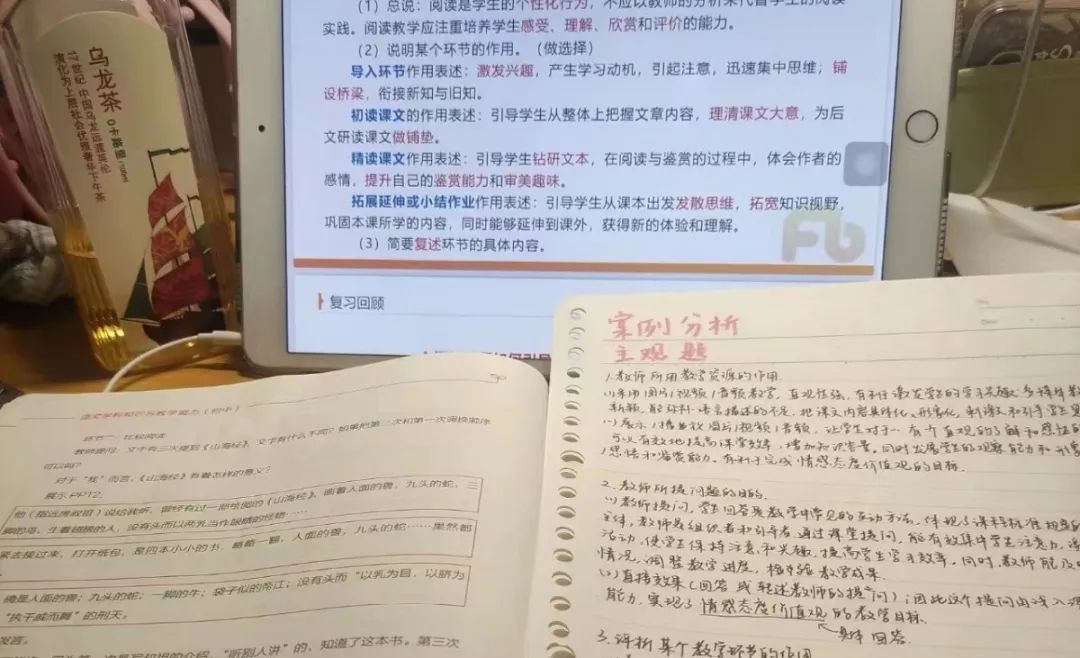 乌龙茶
0卡路里
17世纪 中国乌龙远渡英伦
演化为上层社会优雅奢华下午茶
（1）总说：阅读是学生的个性化行为，不应以教师的分析来代替学生的阅读
实践。阅读教学应注重培养学生感受、理解、欣赏和评价的能力。
（2）说明某个环节的作用。（做选择）
导入环节作用表述：激发兴趣，产生学习动机，引起注意，迅速集中思维；铺
设桥梁，衔接新知与旧知。
初读课文的作用表述：引导学生从整体上把握文章内容，理清课文大意，为后
文研读课文做铺垫。
精读课文作用表述：引导学生钻研文本，在阅读与鉴赏的过程中，体会作者的
感情，提升自己的鉴赏能力和审美趣味。
拓展延伸或小结作业作用表述：引导学生从课本出发发散思维，拓宽知识视野，
巩固本课所学的内容，同时能够延伸到课外，获得新的体验和理解。
（3）简要复述环节的具体内容。
Fb
复习回顾
语文学科知识与教学能力（初中）
环节二：比较阅读
教师提问：文中有三次提到《山海经》，文字有什么不同？如果把第二次和第一次调换顺序
可以吗？
对于“我”而言，《山海经》有着怎样的意义？
展示PPT2。
他（指远房叔祖）说给我听，曾经有过一部绘图的《山海经》，画着人面的兽，九头的蛇，三
脚的鸟，生着翅膀的人，没有头而以两乳当作眼睛的怪物……
紧去接过来，打开纸包，是四本小小的书，略略一翻，人面的兽，九头的蛇……果然都
确是人面的兽；九头的蛇；一脚的牛；袋子似的帝江；没有头而“以乳为目，以脐为
“执干戚而舞”的刑天。
发言。
“听别人讲”的，知道了这本书。第三次
案例分析
主观题
1.教师所用教学资源的作用
(1)采用图片/视频/音频教学，直观性强，有利于激发学生的学习兴趣，多媒体教
弥补语言描述的不足，把课文内容具体化、形象化，刺激和引导学生
(2)展示/播放图片/视频/音频，让学生对于…有个直观的了解和感性的
可以有效地提高课堂效率，增加知识容量。同时发展学生的观察能力和形象
思维和鉴赏能力。有利于完成情感态度价值观的目标。
2.教师所提问题的目的
(1)教师提问，学生回答是教学中常见的互动方法，体现了课程标准
主体，教师是组织者和引导者，通过课堂提问，能有效集中学生注意力，
活动，使学生保持注意和兴趣，提高学生学习效率，同时，教师能及时
情况，调整教学进度，检验教学成果。
(2)直接效果（回答或转述教师的提问）；因此这个提问由浅入深
能力，实现了情感态度价值观的教学目标。
具体回答
3.评析某个教学环节的作用